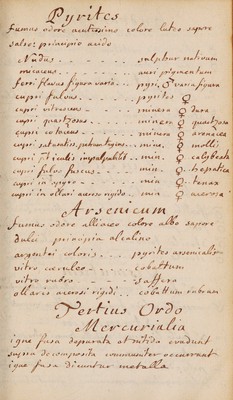 Pyrites
fumus odore acutissimo colore luteo sapore
salso: principio acido
Nudus - - - - - sulphur nativum
micaceus - - - - - auri pigmentum
ferri flavus figura varia - - - pyri. ♀ varia figura
cupri fulvus - - - - - pyrites ♀
cupri vitrescens - - - minera ♀ dura
cupri quartzosus - - - minera ♀ quartzosa
cupri cotaceus - - - minera ♀ arenacea
cupri saturatis, pubius tigens - - min. ♀ molli
cupri particulis impalpabilib. - - min. ♀ calybeata
cupri fulvo fuscus - - - min. ♀ hepatica
cupri in apyro - - - min ♀ tenax
cupri in ollari aceroso rigido - - min ♀ acerosa
Arsenicum
fumus odore alliaceo colore albo sapore
dulci principio alcalino
argentei coloris - - - pyrites arsenicalis
vitro cæruleo - - - cobaltum
vitro rubro - - - saffera
ollaris acerosi rigidi - - cobaltum rubrum
Tertius Ordo
Mercurialia
igne fusa depurata et nitida evadunt
supra decomposita communiter occurrunt
igne fusa dicuntur metalla